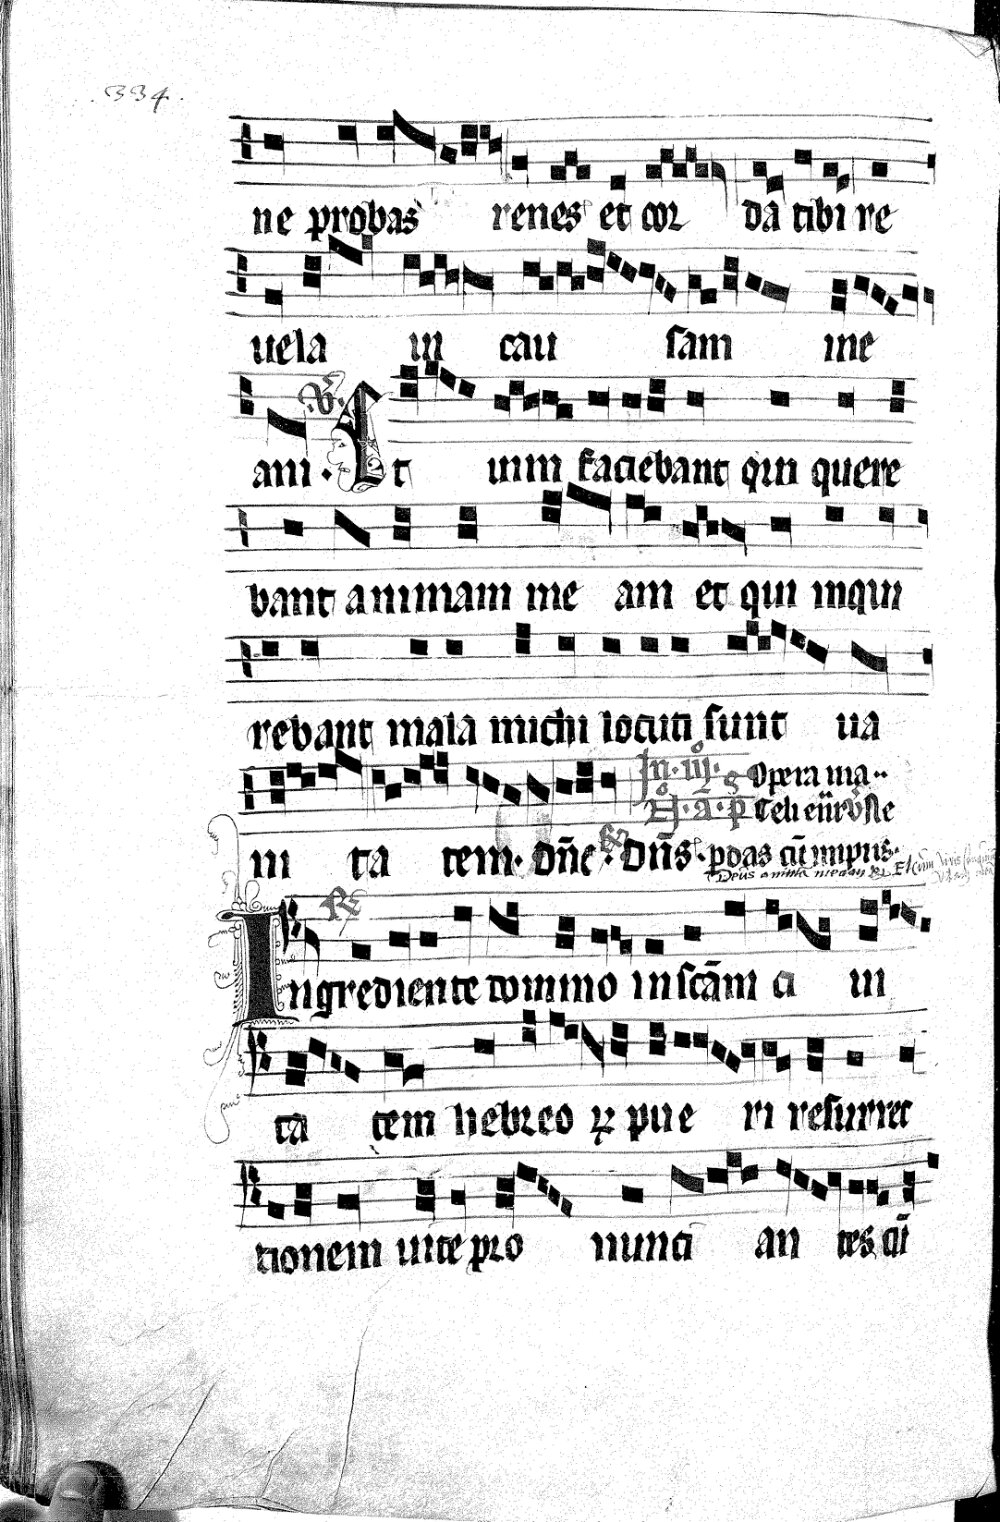 .334.
ne probas renes et cor da tibi re
uela in cau sam me
am. V. Et uim faciebant qui quere
bant animam me am et qui inqui
rebant mala michi locuti sunt ua
In. iij. Opera ma..
Celi
ni ta tem. dñe. Dñs. pdas cũ impiis.
Deus anima
R
Ingrediente domino in scãm ci ui
ta tem hebreoꝝ pue ri resurrec
tionem uite pro nunci an tes cũ